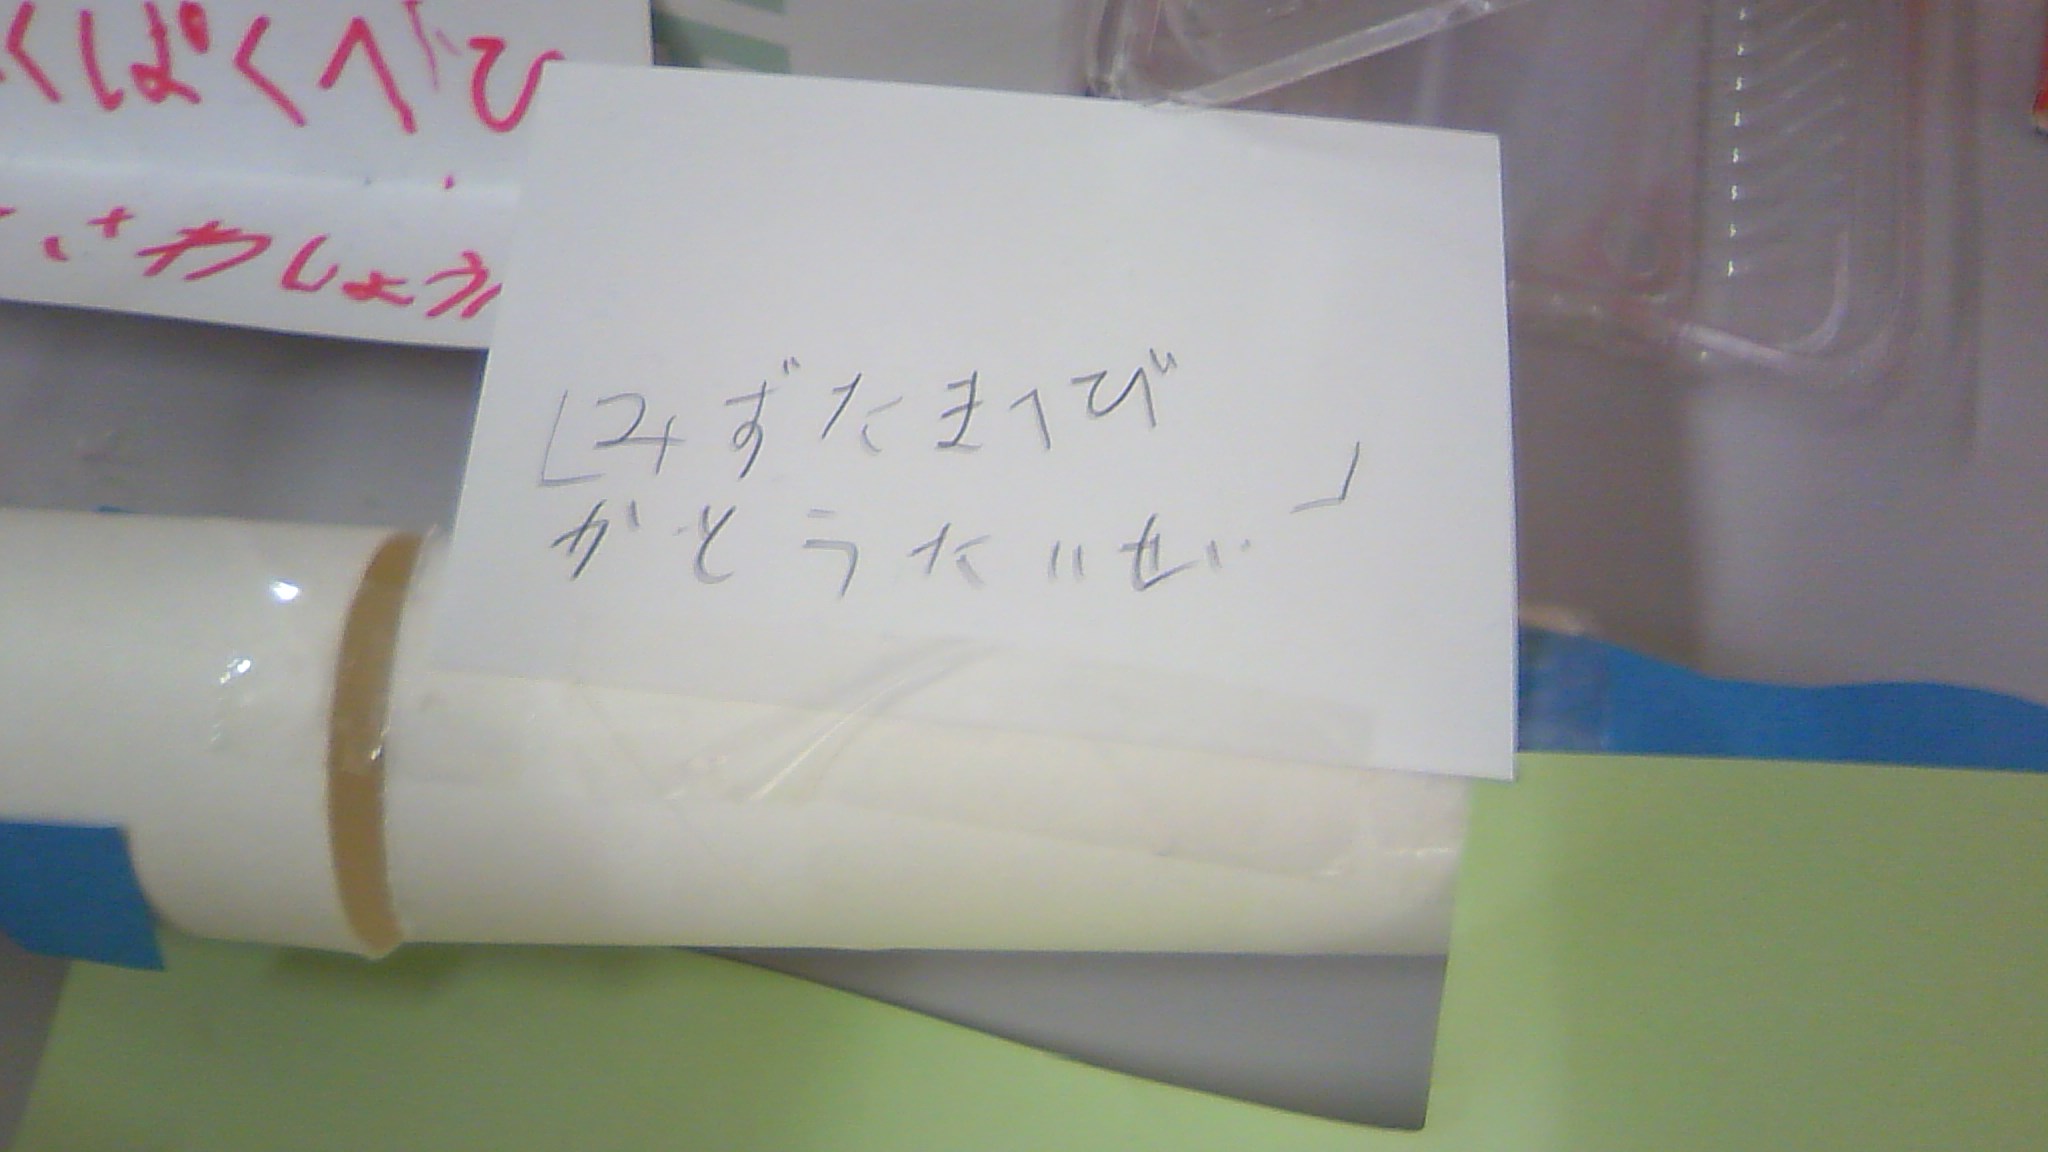 くぱくへび
さわしょう
「みずたまへび
かとうたいせい」